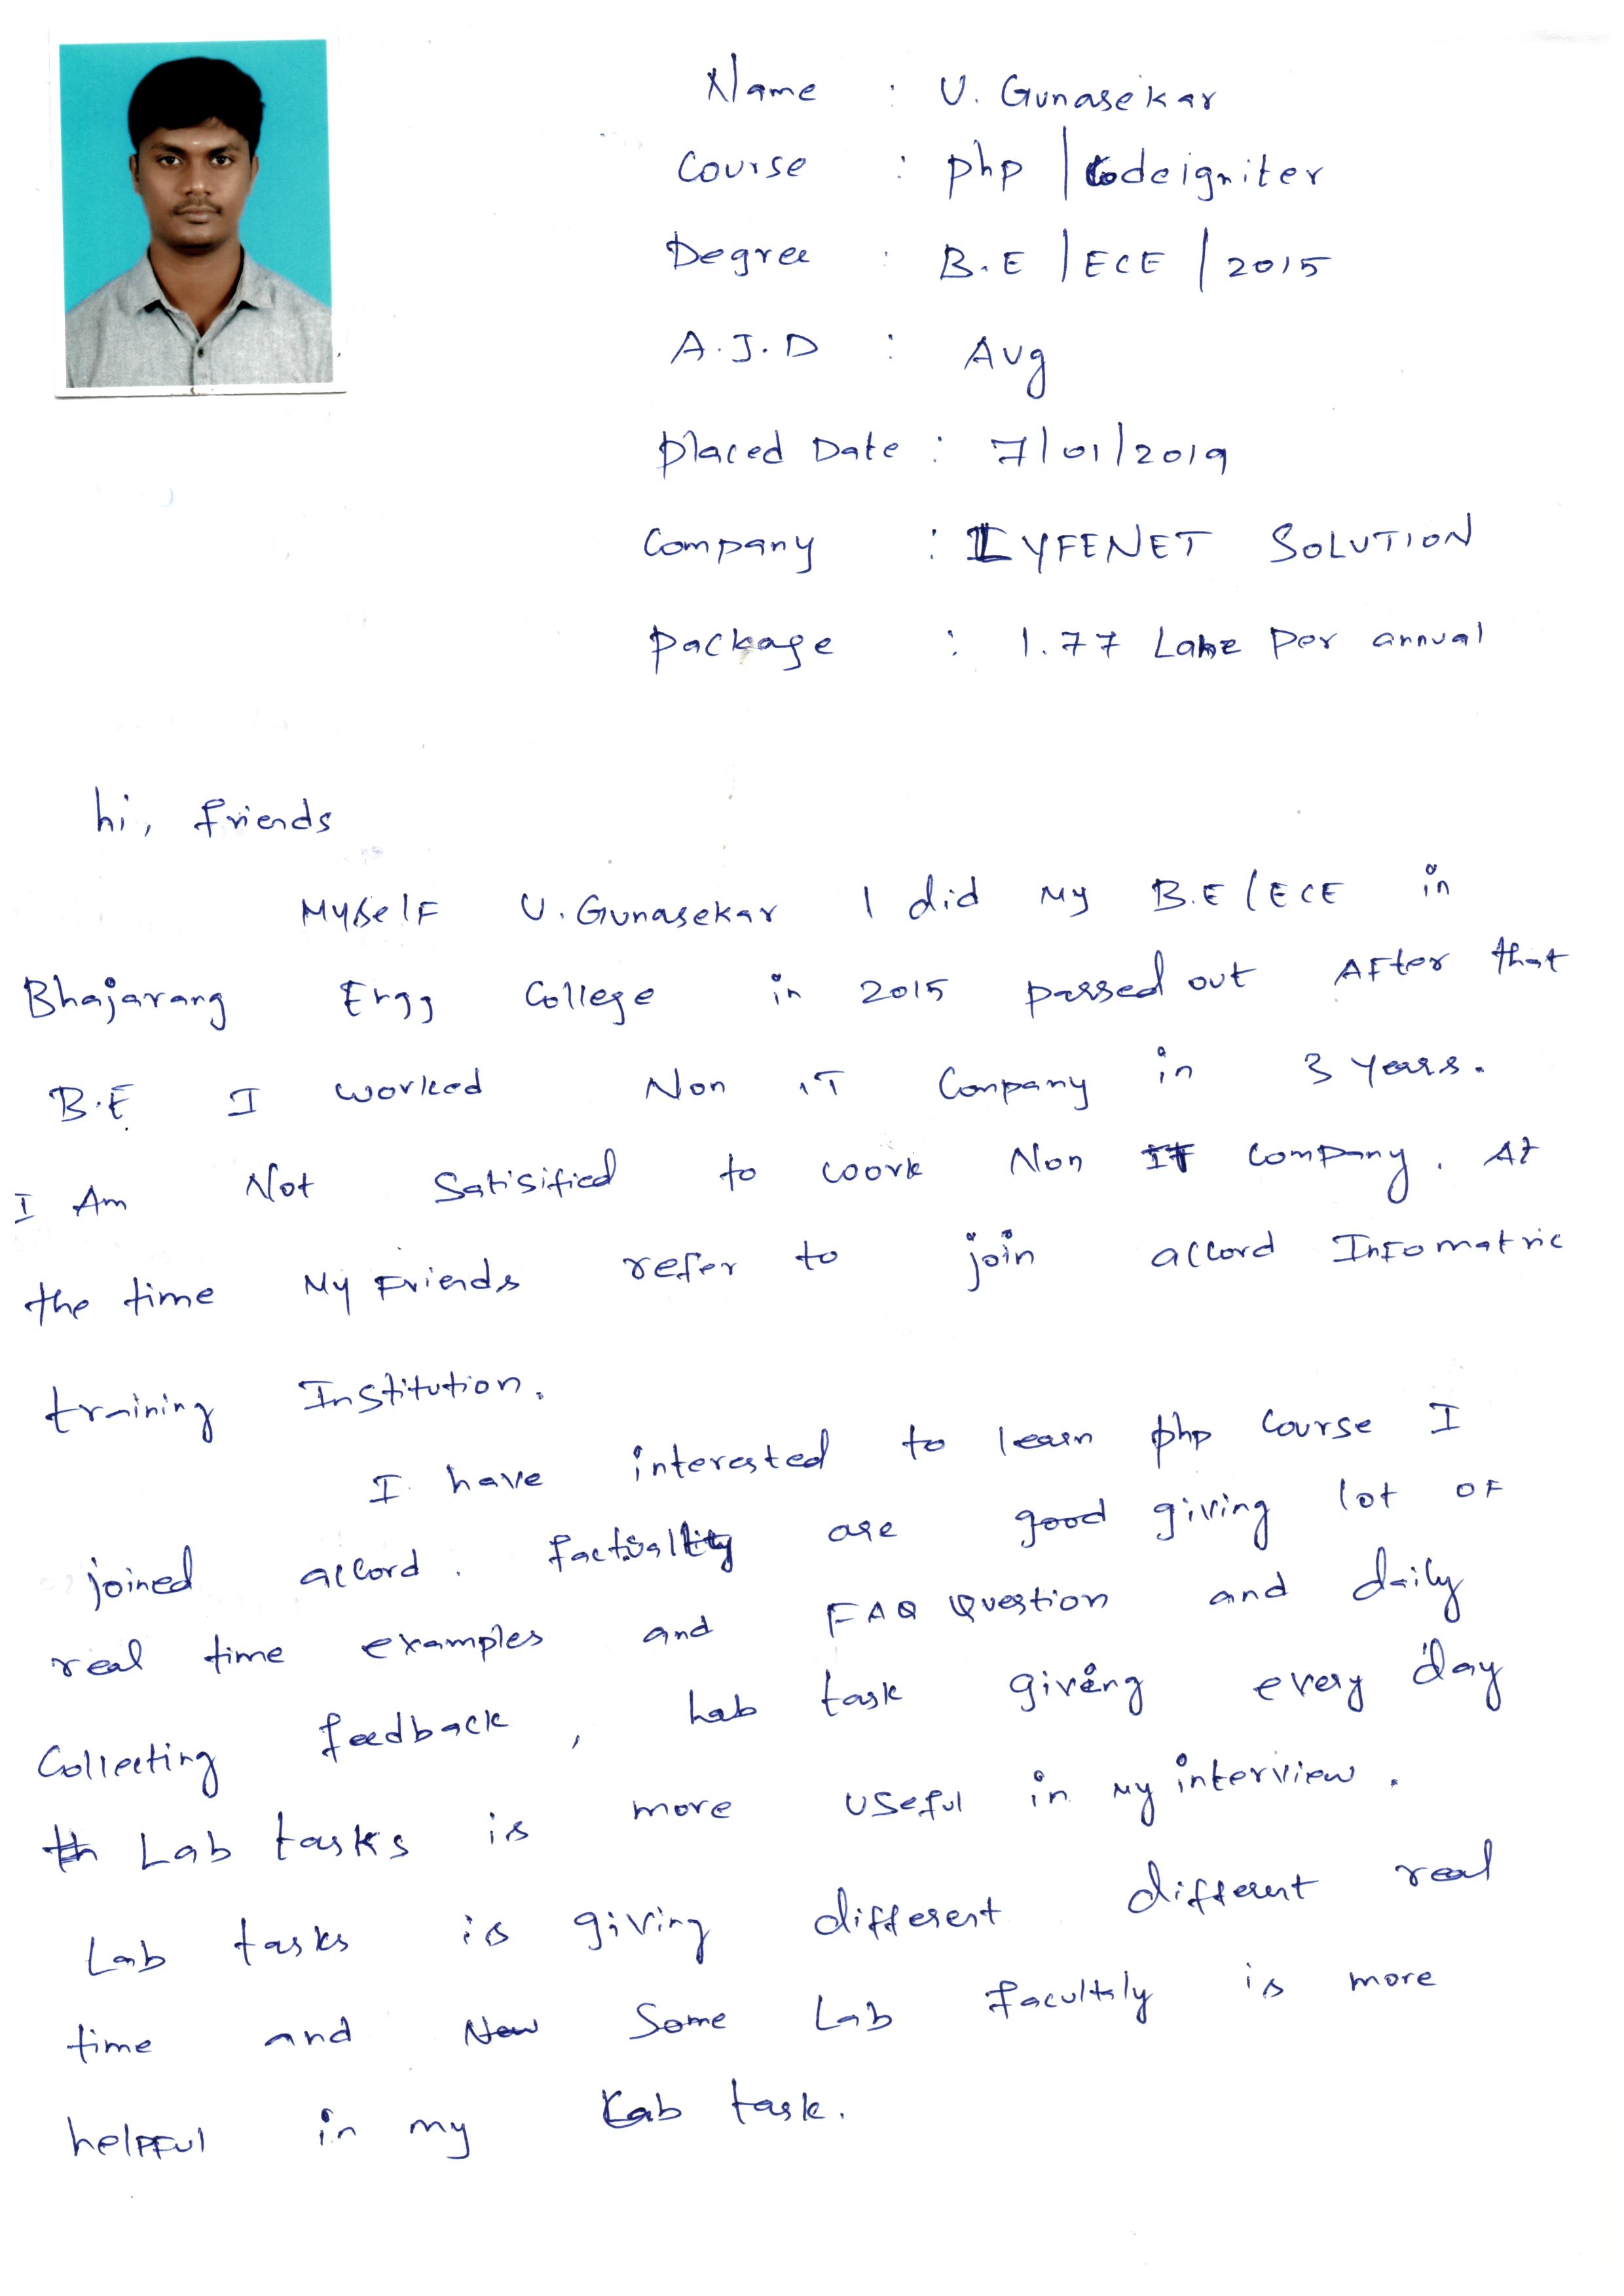 Name : U. Gunasekar
Course : php | Codeigniter
Degree : B.E | ECE | 2015
A.J.D : Aug
placed Date : 7/01/2019
Company : LYFENET SOLUTION
package : 1.77 Per annual
hi, friends
Myself U. Gunasekar I did my B.E/ECE in
Bhajarang Engg College in 2015 passed out After that
B.E I worked Non IT Company in 3 years.
I Am Not Satisified to work Non IT Company. At
the time My Friends refer to join accord Infomatric
training Institution.
I have interested to learn php course I
joined accord. are good giving lot of
real time examples and FAQ Question and daily
Collecting feedback, Lab task giving every day
Lab tasks is more useful in my interview.
Lab tasks is giving different different real
time and Some Lab is more
helpful in my Lab task.